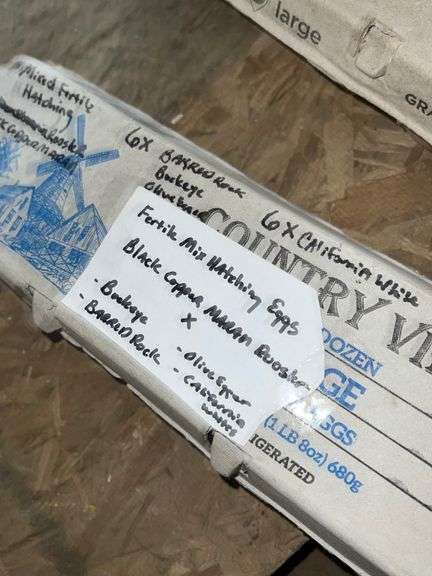 large
GRA
Mixed Fertile
Hatching
Rooster
6X BARRED Rock
Buckeye
Olive
6X CAliFornia White
COUNTRY VI
DOZEN
GE
GGS
(1 LB 8oz) 680g
IGERATED
Fertile Mix Hatching Eggs
Black Copper MARAN Rooster
X
- Buckeye
- BARRED Rock
- Olive Egger
- CAliFornia
whites